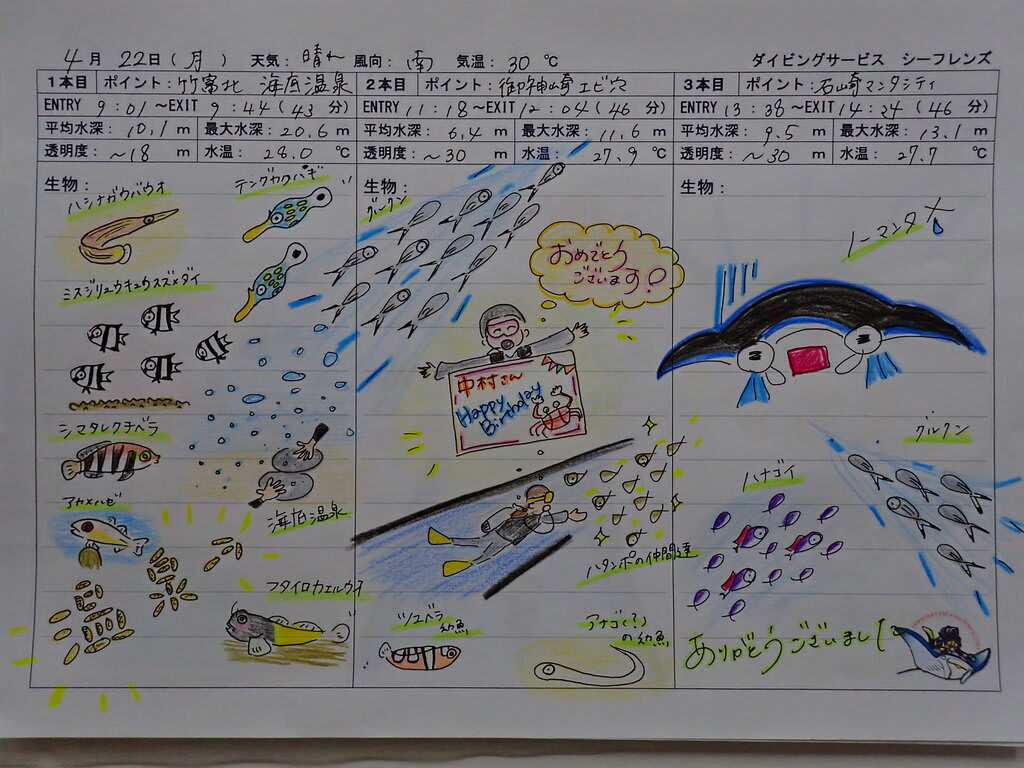 4月 22日(月) 天気: 晴れ 風向: 南 気温: 30 ℃ ダイビングサービス シーフレンズ
1本目 ポイント: 竹富北 海底温泉
ENTRY 9:01～EXIT 9:44(43 分)
平均水深: 10.1 m 最大水深: 20.6 m
透明度: ～18 m 水温: 28.0 ℃
生物:
ハシナガウバウオ
テングカワハギ
ミスジリュウキュウスズメダイ
シマタレクチベラ
アカメハゼ
海底温泉
フタイロカエルウオ
2本目 ポイント: 御神崎エビ穴
ENTRY 11:18～EXIT 12:04(46 分)
平均水深: 6.4 m 最大水深: 11.6 m
透明度: ～30 m 水温: 27.9 ℃
生物:
グルクン
おめでとう
ございます!
中村さん
Happy
Birthday
ハタンポの仲間達
ツユベラ
幼魚
アナゴ(?)
の幼魚
3本目 ポイント: 石崎マンタシティ
ENTRY 13:38～EXIT 14:24(46 分)
平均水深: 9.5 m 最大水深: 13.1 m
透明度: ～30 m 水温: 27.7 ℃
生物:
ノーマンタ
グルクン
ハナゴイ
ありがとうございました